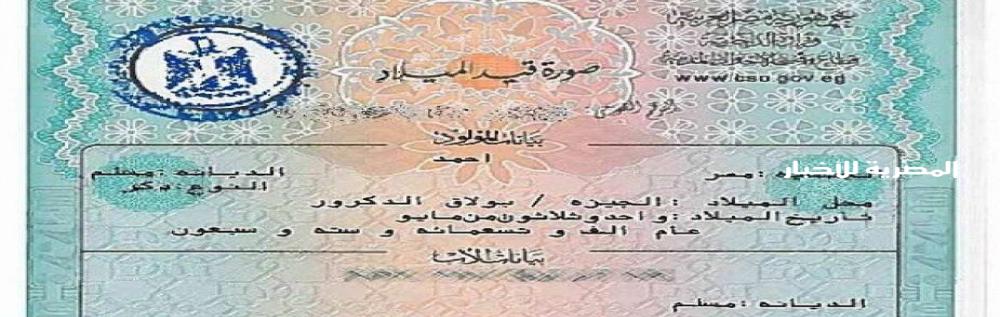 جمهورية مصر العربية
وزارة الداخلية
www.cso.gov.eg
صورة قيد الميلاد
بيانات المولود
احمد
مصر الديانه : مسلم
المصرية للأخبار
النوع : ذكر
محل الميلاد : الجيزه / بولاق الدكرور
تاريخ الميلاد : واحد وثلاثون من مايو
عام الف و تسعمائه و سته و سبعون
بيانات الأب
الديانه : مسلم